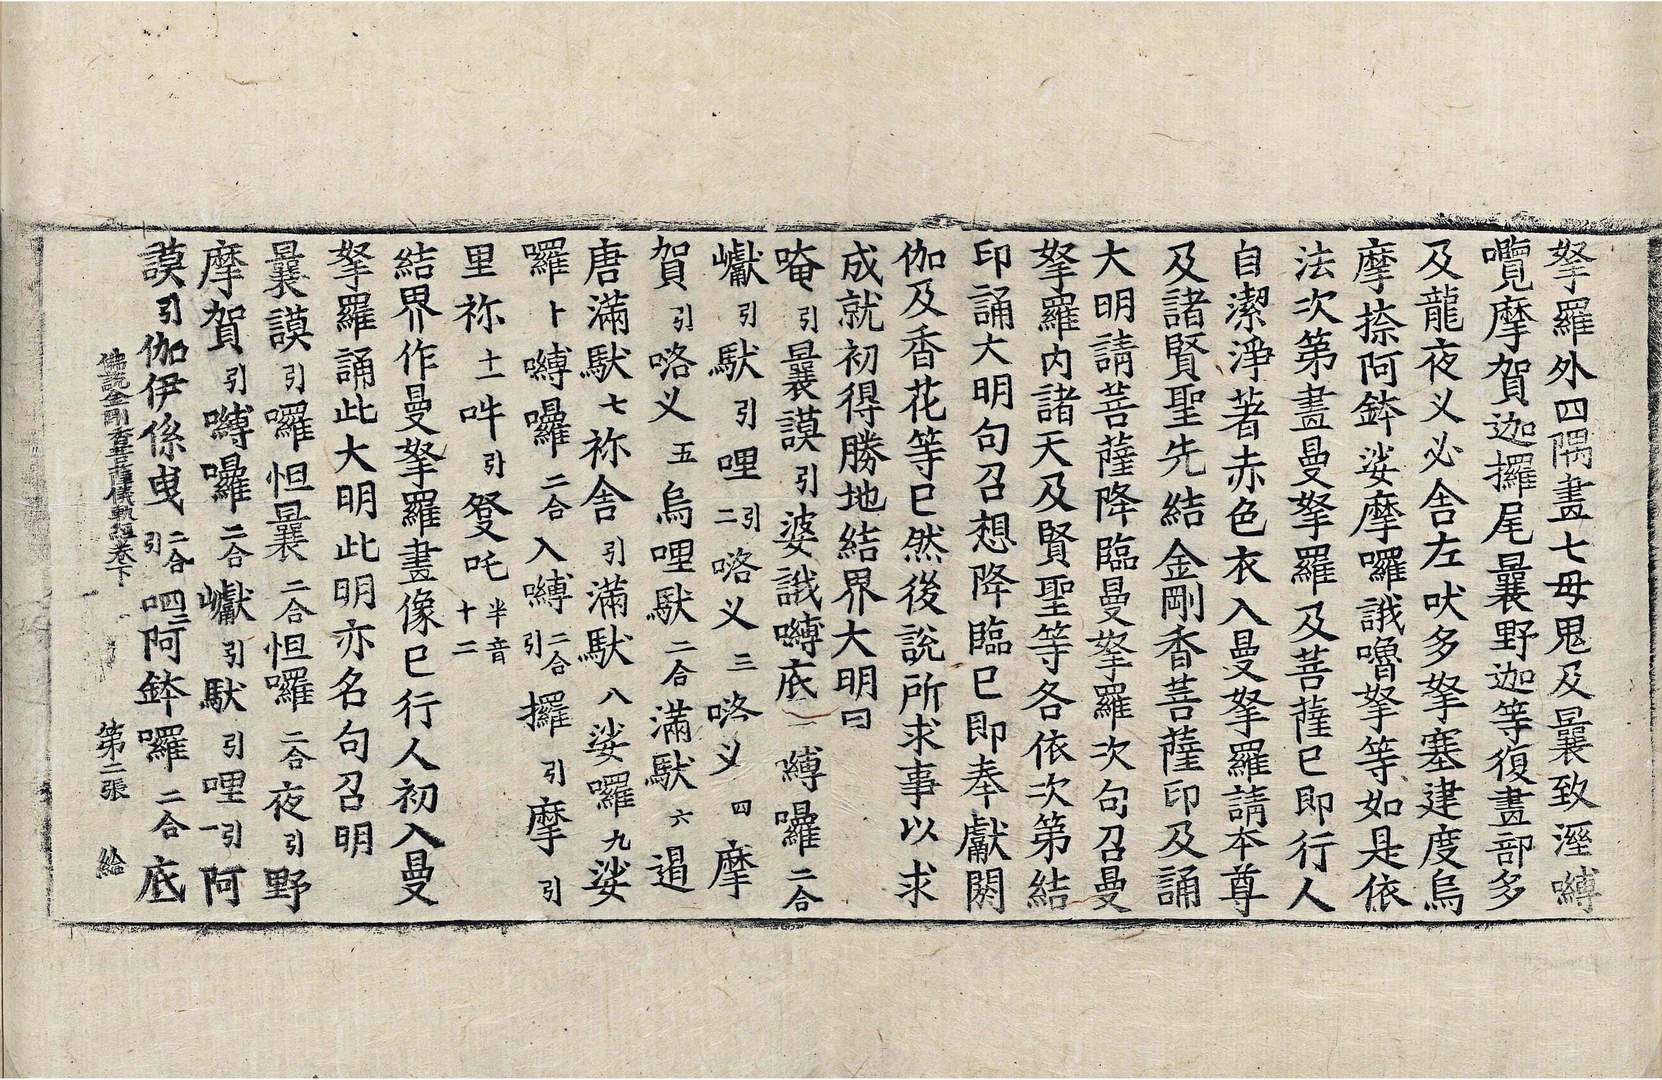 拏羅外四隅畫七毋鬼及曩致溼嚩
囕摩賀迦攞尾曩野迦等復畫部多
及龍夜义必舍左吠多拏塞建度烏
摩捺阿鉢娑摩囉誐嚕拏等如是依
法次第畫曼拏羅及菩薩已即行人
自潔淨著赤色衣入曼拏羅請本尊
及諸賢聖先結金剛香菩薩印及誦
大明請菩薩降臨曼拏羅次句召曼
拏羅內諸天及賢聖等各依次第結
印誦大明句召想降臨已即奉獻閼
伽及香花等已然後說所求事以求
成就初得勝地結界大明曰
唵引曩謨引婆誐嚩底一嚩囉二合
巘引馱引哩引二咯义三咯义四摩
賀引咯义五烏哩馱二合滿馱六遏
唐滿馱七祢舍引滿馱八娑囉九娑
囉卜嚩囉二合入嚩二合引攞引摩引
里祢十一吽引發吒半音十二
結界作曼拏羅畫像已行人初入曼
拏羅誦此大明此明亦名句召明
曩謨引囉怛曩二合怛囉二合夜引野
摩賀引嚩囉二合巘引馱引哩引一阿
謨引伽伊係曳二合引呬三阿鉢囉二合底
佛說金剛香菩薩儀軌經卷下 第二張 給